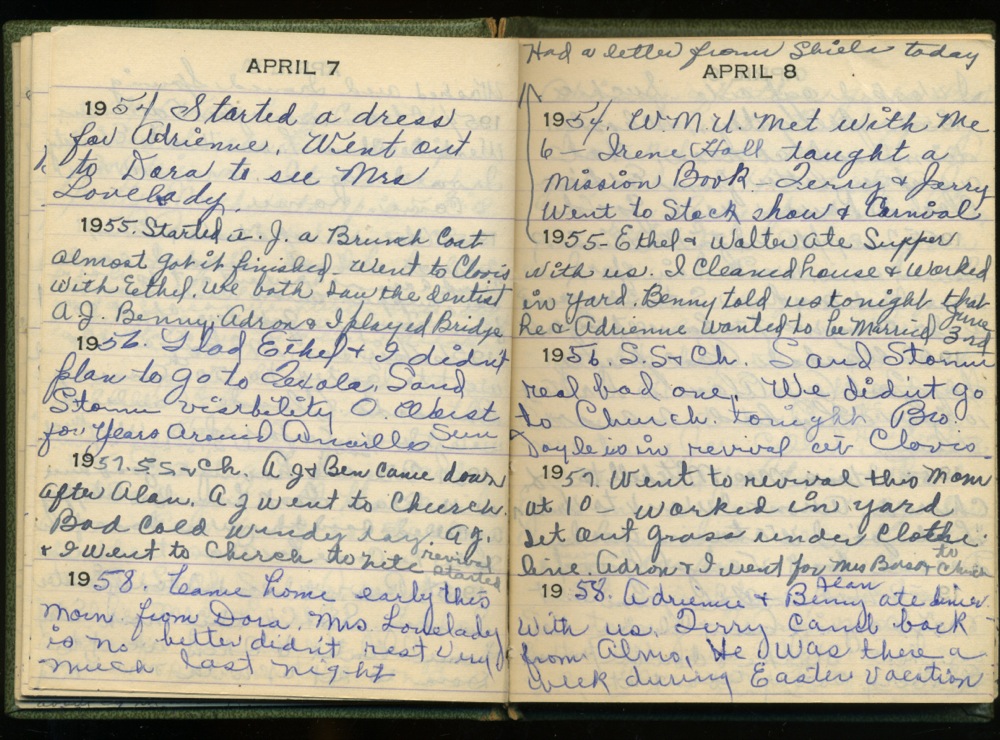 APRIL 7
1954 Started a dress
for Adrienne. Went out
to Dora to see Mrs
Lovelady.
1955. Started A. J. a Brunch Coat
almost got it finished - Went to Clovis
with Ethel. We both saw the dentist
A J. Benny, Adron & I played Bridge
1956. Glad Ethel & I didn't
plan to go to Texola. Sand
Storm visibility O. Worst
for years around Amarillo Sun
1957. S.S & Ch. A J & Ben came down
after Alan. A J went to Church.
Bad Cold windy day. A J.
& I went to Church to nite revival
started
1958. Came home early this
morn. from Dora. Mrs Lovelady
is no better didn't rest very
much last night
Had a letter from Shiela today
APRIL 8
1954. W.M.U. met with me
6 - Irene Hall taught a
Mission Book - Terry & Jerry
Went to Stock show & Carnival
1955 - Ethel & Walter ate Supper
with us. I Cleaned house & Worked
in yard. Benny told us tonight that
he & Adrienne wanted to be Married June
3rd
1956. S.S & Ch. Sand Storm
real bad one. We didn't go
to Church tonight Bro.
Doyle is in revival at Clovis.
1957. Went to revival this Morn
at 10 - worked in yard
set out grass under Clothe
line. Adron & I went for Mrs to Church
1958. Adrienne & Benny Alan ate dinner
with us. Terry came back
from Almo, He was there a
week during Easter Vacation